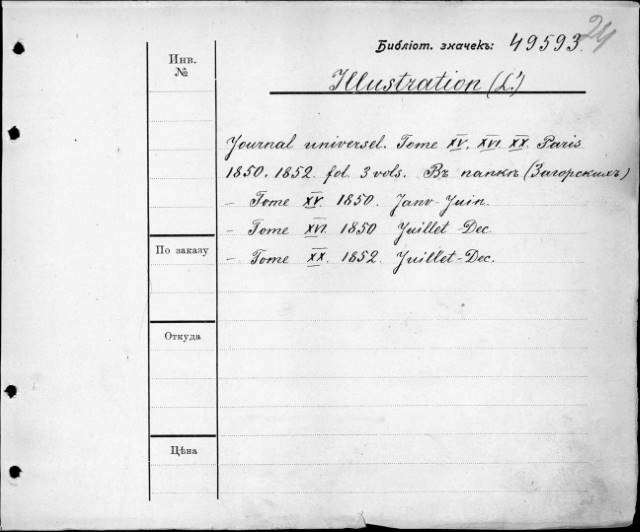 24
Библіот. значекъ: 49593.
Инв.
№
Illustration (L')
Journal universel. Tome XV, XVI. XX. Paris
1850, 1852. fol. 3 vols. Въ папкѣ (Загорскихъ)
– Tome XV. 1850. Janv-Juin.
– Tome XVI. 1850 Juillet-Dec.
– Tome XX. 1852. Juillet-Dec.
По заказу
Откуда
Цѣна